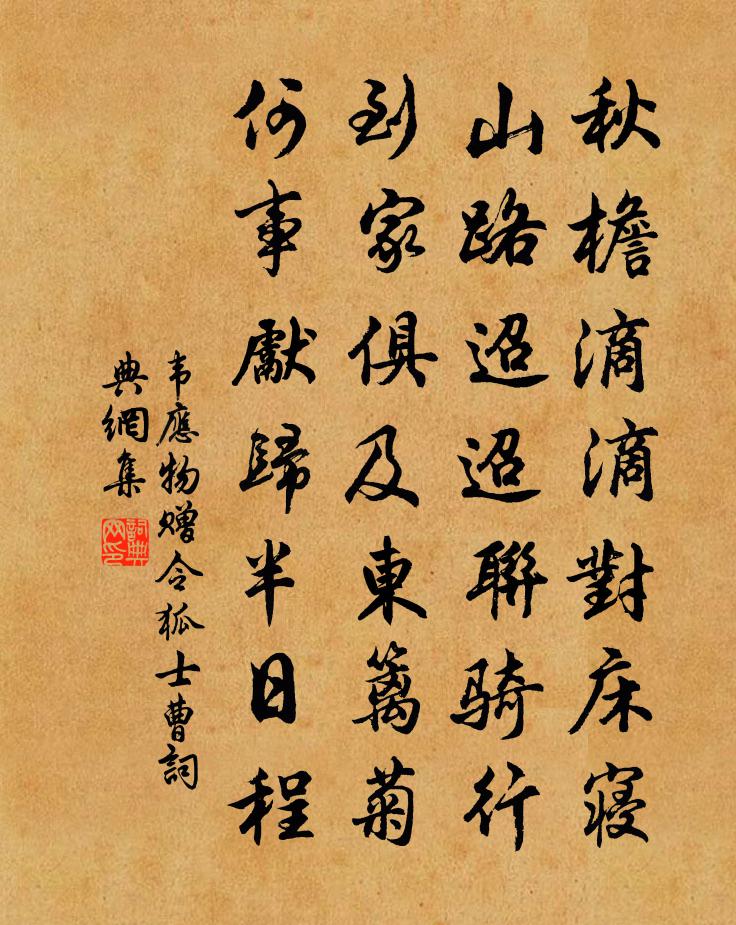 秋檐滴滴對床寝
山路迢迢聯騎行
到家俱及東籬菊
何事獻歸半日程
韦應物赠令狐士曹詞
典網集
詞典
网印